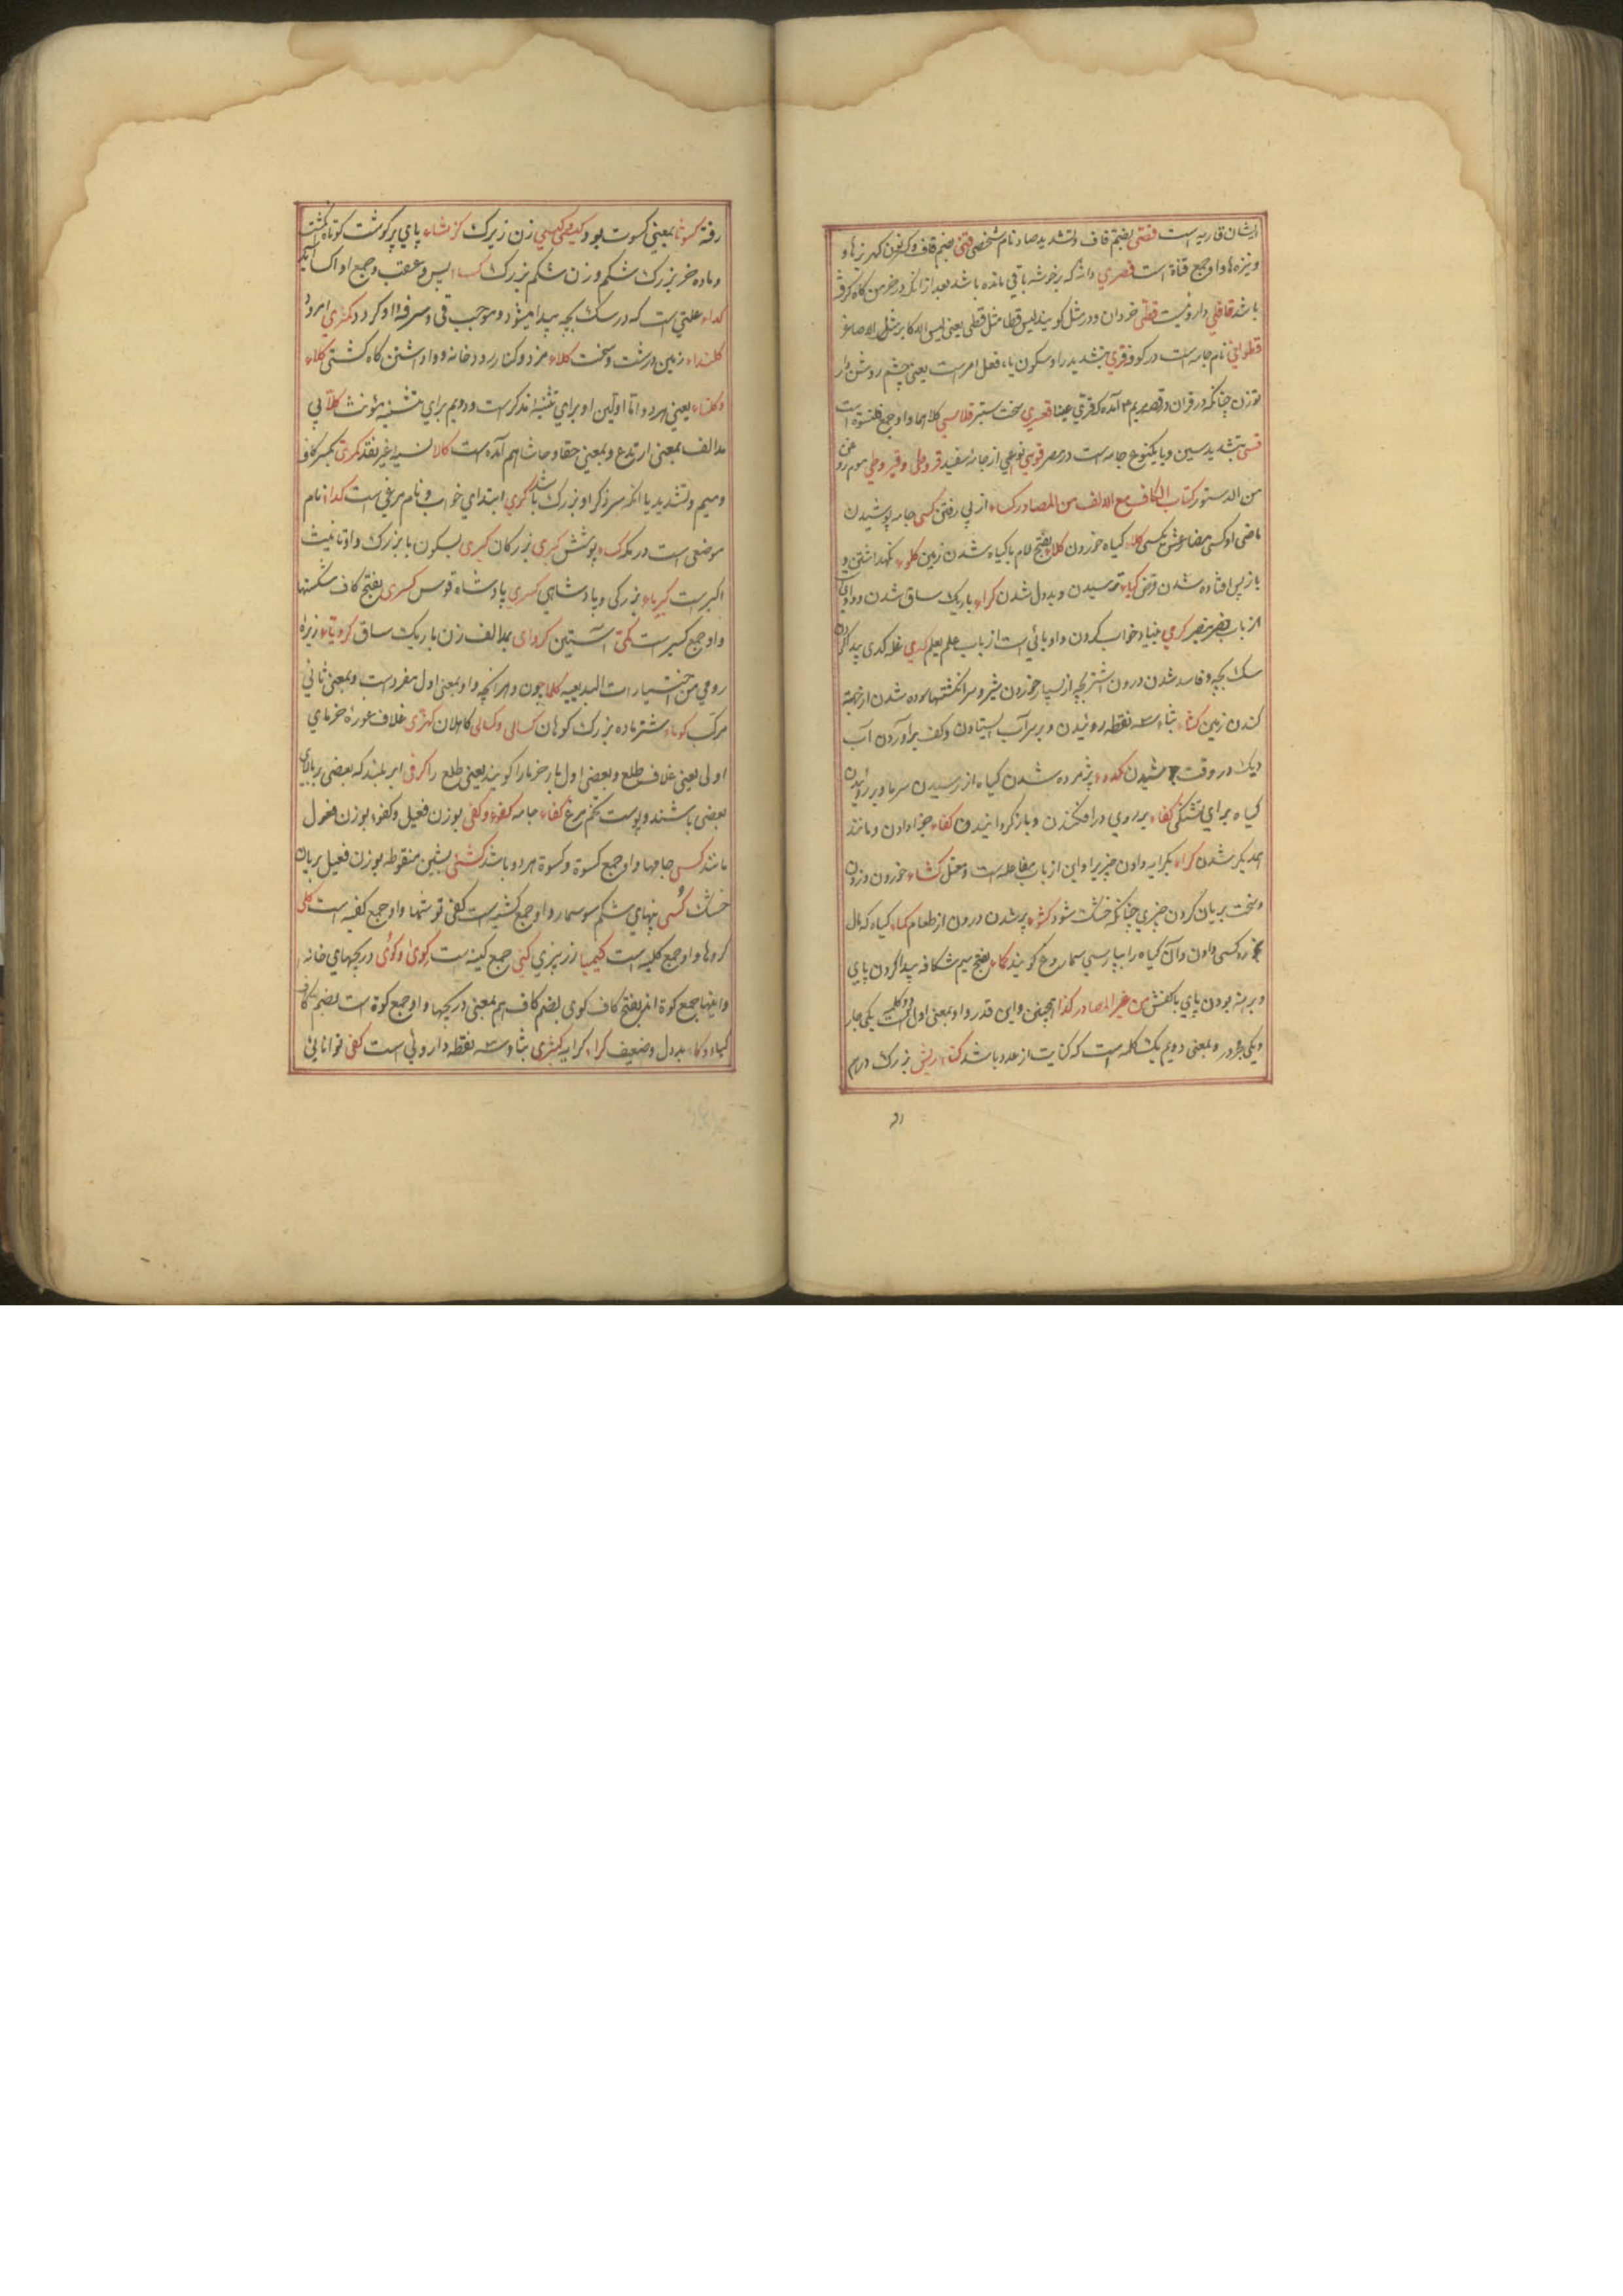 ایشان قاریه است قصّی بضم قاف و تشدید صاد نام شخصی قنی بضم قاف و کسر نون کهریزها و
و نیزه ها و او جمع قناة است قصری دانه که در خوشه باقی مانده باشد بعد از انکه در خرمن کاه کرفته
باشد قاقلی داروئیست قطی خردان و در مثل کویند لیس قطا مثل قطی یعنی لیس الاکابر مثل الاصاغر
قطوانی نام جامه است در کوفه قری بتشدید را و سکون یا، فعل امر است یعنی چشم روشن دار
تو زن چنانکه در قران در قصه مریم آمده که و قری عینا قعسری سخت ستبر قلاسی کلاهها و او جمع قلنسوة است
قسی بتشدید سین و یا یکنوع جامه است در مصر قوهی نوعی از جامه سفید قروطی و قیروطی موم روغن
من الدستور کتاب الکاف مع الالف من المصادر کساء از پی رفتن کسی جامه پوشیدن
ماضی او کسی مضارعش یکسی کلاء کیاه خوردن کلاء بفتح لام با کیاه شدن زمین کلوء نکهداشتن و
باز پس افتاده شدن قرض کیاء ترسیدن و بددل شدن کراء باریک ساق شدن و واوی
از باب نصر ینصر کری بنیاد خواب کردن و او یائی است از باب علم یعلم کدی غله کدی پیدا کردن
سک بچه و فاسد شدن درون اشتر بچه از بسیار خوردن شیر و سر انکشتها سوده شدن از جهة
کندن زمین کثاء بثاء سه نقطه روئیدن و بر سر آب ایستادن و کف بر آوردن آب
دیک در وقت جوشیدن کدوء پژمرده شدن کیاه از رسیدن سرما و بر روئیدن
کیاه برای تشنکی کفاء بر روی در افکندن و باز کردانیدن کفاء جزا دادن و مانند
یکدیکر شدن کراء بکرایه دادن چیزیرا و این از باب مفاعله است و معتل کشاء خوردن و زدن
و سخت بریان کردن چیزی چنانکه خشک شود کشوء پر شدن درون از طعام کماء کیاه که بال
خورد کسی دادن و آن کیاه را بپارسی سماروغ کویند کماء بفتح میم شکافه پیدا کردن پای
و برهنه بودن پای با کفش من غیر المصادر کذا همچنین و این قدر و او بمعنی اول دو کلمه است یکی جار
و یکی مجرور و بمعنی دویم یک کلمه است که کنایت از عدد باشد کثاء ریش بزرک درهم
رفته کسوتا بمعنی کسوت بود کیصی کیسی زن زیرک کزماء پای پر کوشت کوتاه انکشت
و ماده خر بزرک شکم و زن شکم بزرک کساء پس و عقب و جمع او اکسا آید
کداء علتی است که در سک بچه پیدا میشود و موجب قی و سرفۀ او کردد کمثری امرود
کلنداء زمین درشت و سخت کلاء مزد و کنار رود خانه و وا داشتن کاه کشتی کلاء
و کلتاء یعنی هر دو اما اولین او برای تثنیه مذکر است و دویم برای تثنیه مؤنث کلاّ بی
مد الف بمعنی ارتدع و بمعنی حقا و حاشا هم آمده است کالا نسیه غیر نقد کمریّ بکسر کاف
و میم و تشدید یا انکه سر ذکر او بزرک باشد کری ابتدای خواب و نام مرغی است کداء نام
موضعی است در مکه کساء پوشش کبری بزرکان کبری بسکون با بزرک و او تانیث
اکبر است کبریاء بزرکی و پادشاهی کسری پادشاه قوس کسری بفتح کاف شکستها
و او جمع کسیر است کمّی آستین کروای بمد الف زن باریک ساق کرویاء زیره
رومی من اختیارات البدیعیه کلما چون و هرانچه و او بمعنی اول مفرد است و بمعنی ثانی
مرکب کوماء شتر ماده بزرک کوهان کسالی و کسالی کاهلان کفری غلاف غوره خرمای
اولی یعنی غلاف طلع و بعضی اول بار خرما را کویند یعنی طلع را کرفی ابر بلند که بعضی بر بالای
بعضی باشند و پوست تخم مرغ کفاء جامه کفوء و کفی بوزن فعیل و کفو، بوزن فعول
مانند کسی جامها و او جمع کسوة و کسوة هر دو باشد کشی بشین منقوطه بوزن فعیل بریان
خشک کشی پیهای شکم سوسمار و او جمع کشیه است کفی قوتها و او جمع کفیه است کلی
کرده ها و او جمع کلیه است کیمیا زر پزی کنی جمع کنیه است کویً و کوی دریچهای خانه
و اینها جمع کوة اند بفتح کاف کوی بضم کاف هم بمعنی دریچها و او جمع کوة است بضم کاف
کیاء و کاء بددل و ضعیف کراء کرایه کثری بثاء سه نقطه داروئی است کفی توانائی